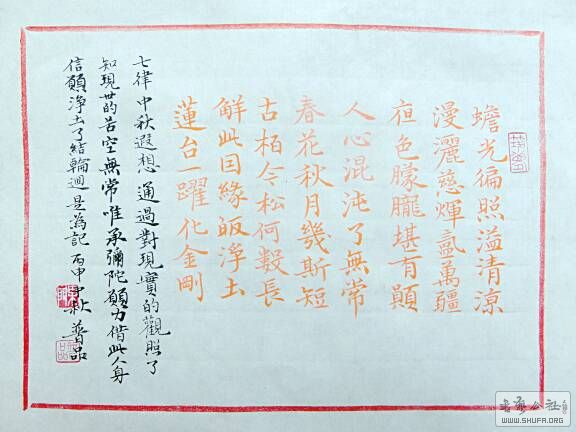 蟾光徧照溢清涼
漫灑慈煇萬疆
亱色朦朧堪有顛
人心混沌了無常
春花秋月幾斯短
古栢今松何數長
解此因緣皈淨土
蓮台一躍化金剛
七律 中秋遐想 通過對現實的觀照了
知現世的苦空無常唯承彌陀願力借此人身
信願淨土了結輪迴 是為記 丙申中秋 普品
WWW.SHUFA.ORG